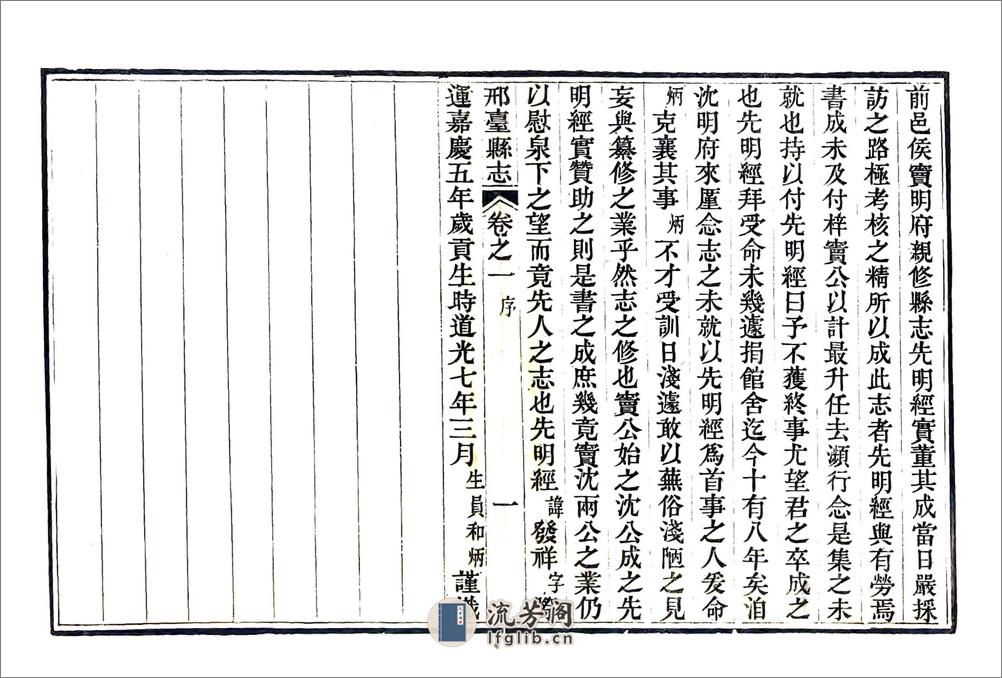 前邑侯竇明府親修縣志先明經實董其成當日嚴採
訪之路極考核之精所以成此志者先明經與有勞焉
書成未及付梓竇公以計最升任去瀕行念是集之未
就也持以付先明經曰予不獲終事尤望君之卒成之
也先明經拜受命未幾遽捐館舍迄今十有八年矣洎
沈明府來厪念志之未就以先明經爲首事之人爰命
炳克襄其事炳不才受訓日淺遽敢以蕪俗淺陋之見
妄與纂修之業乎然志之修也竇公始之沈公成之先
明經實贊助之則是書之成庶幾竟竇沈兩公之業仍
以慰泉下之望而竟先人之志也先明經諱發祥字
邢臺縣志 卷之一 序 一
運嘉慶五年歲貢生時道光七年三月生員和炳謹識
流芳阁
lfglib.cn